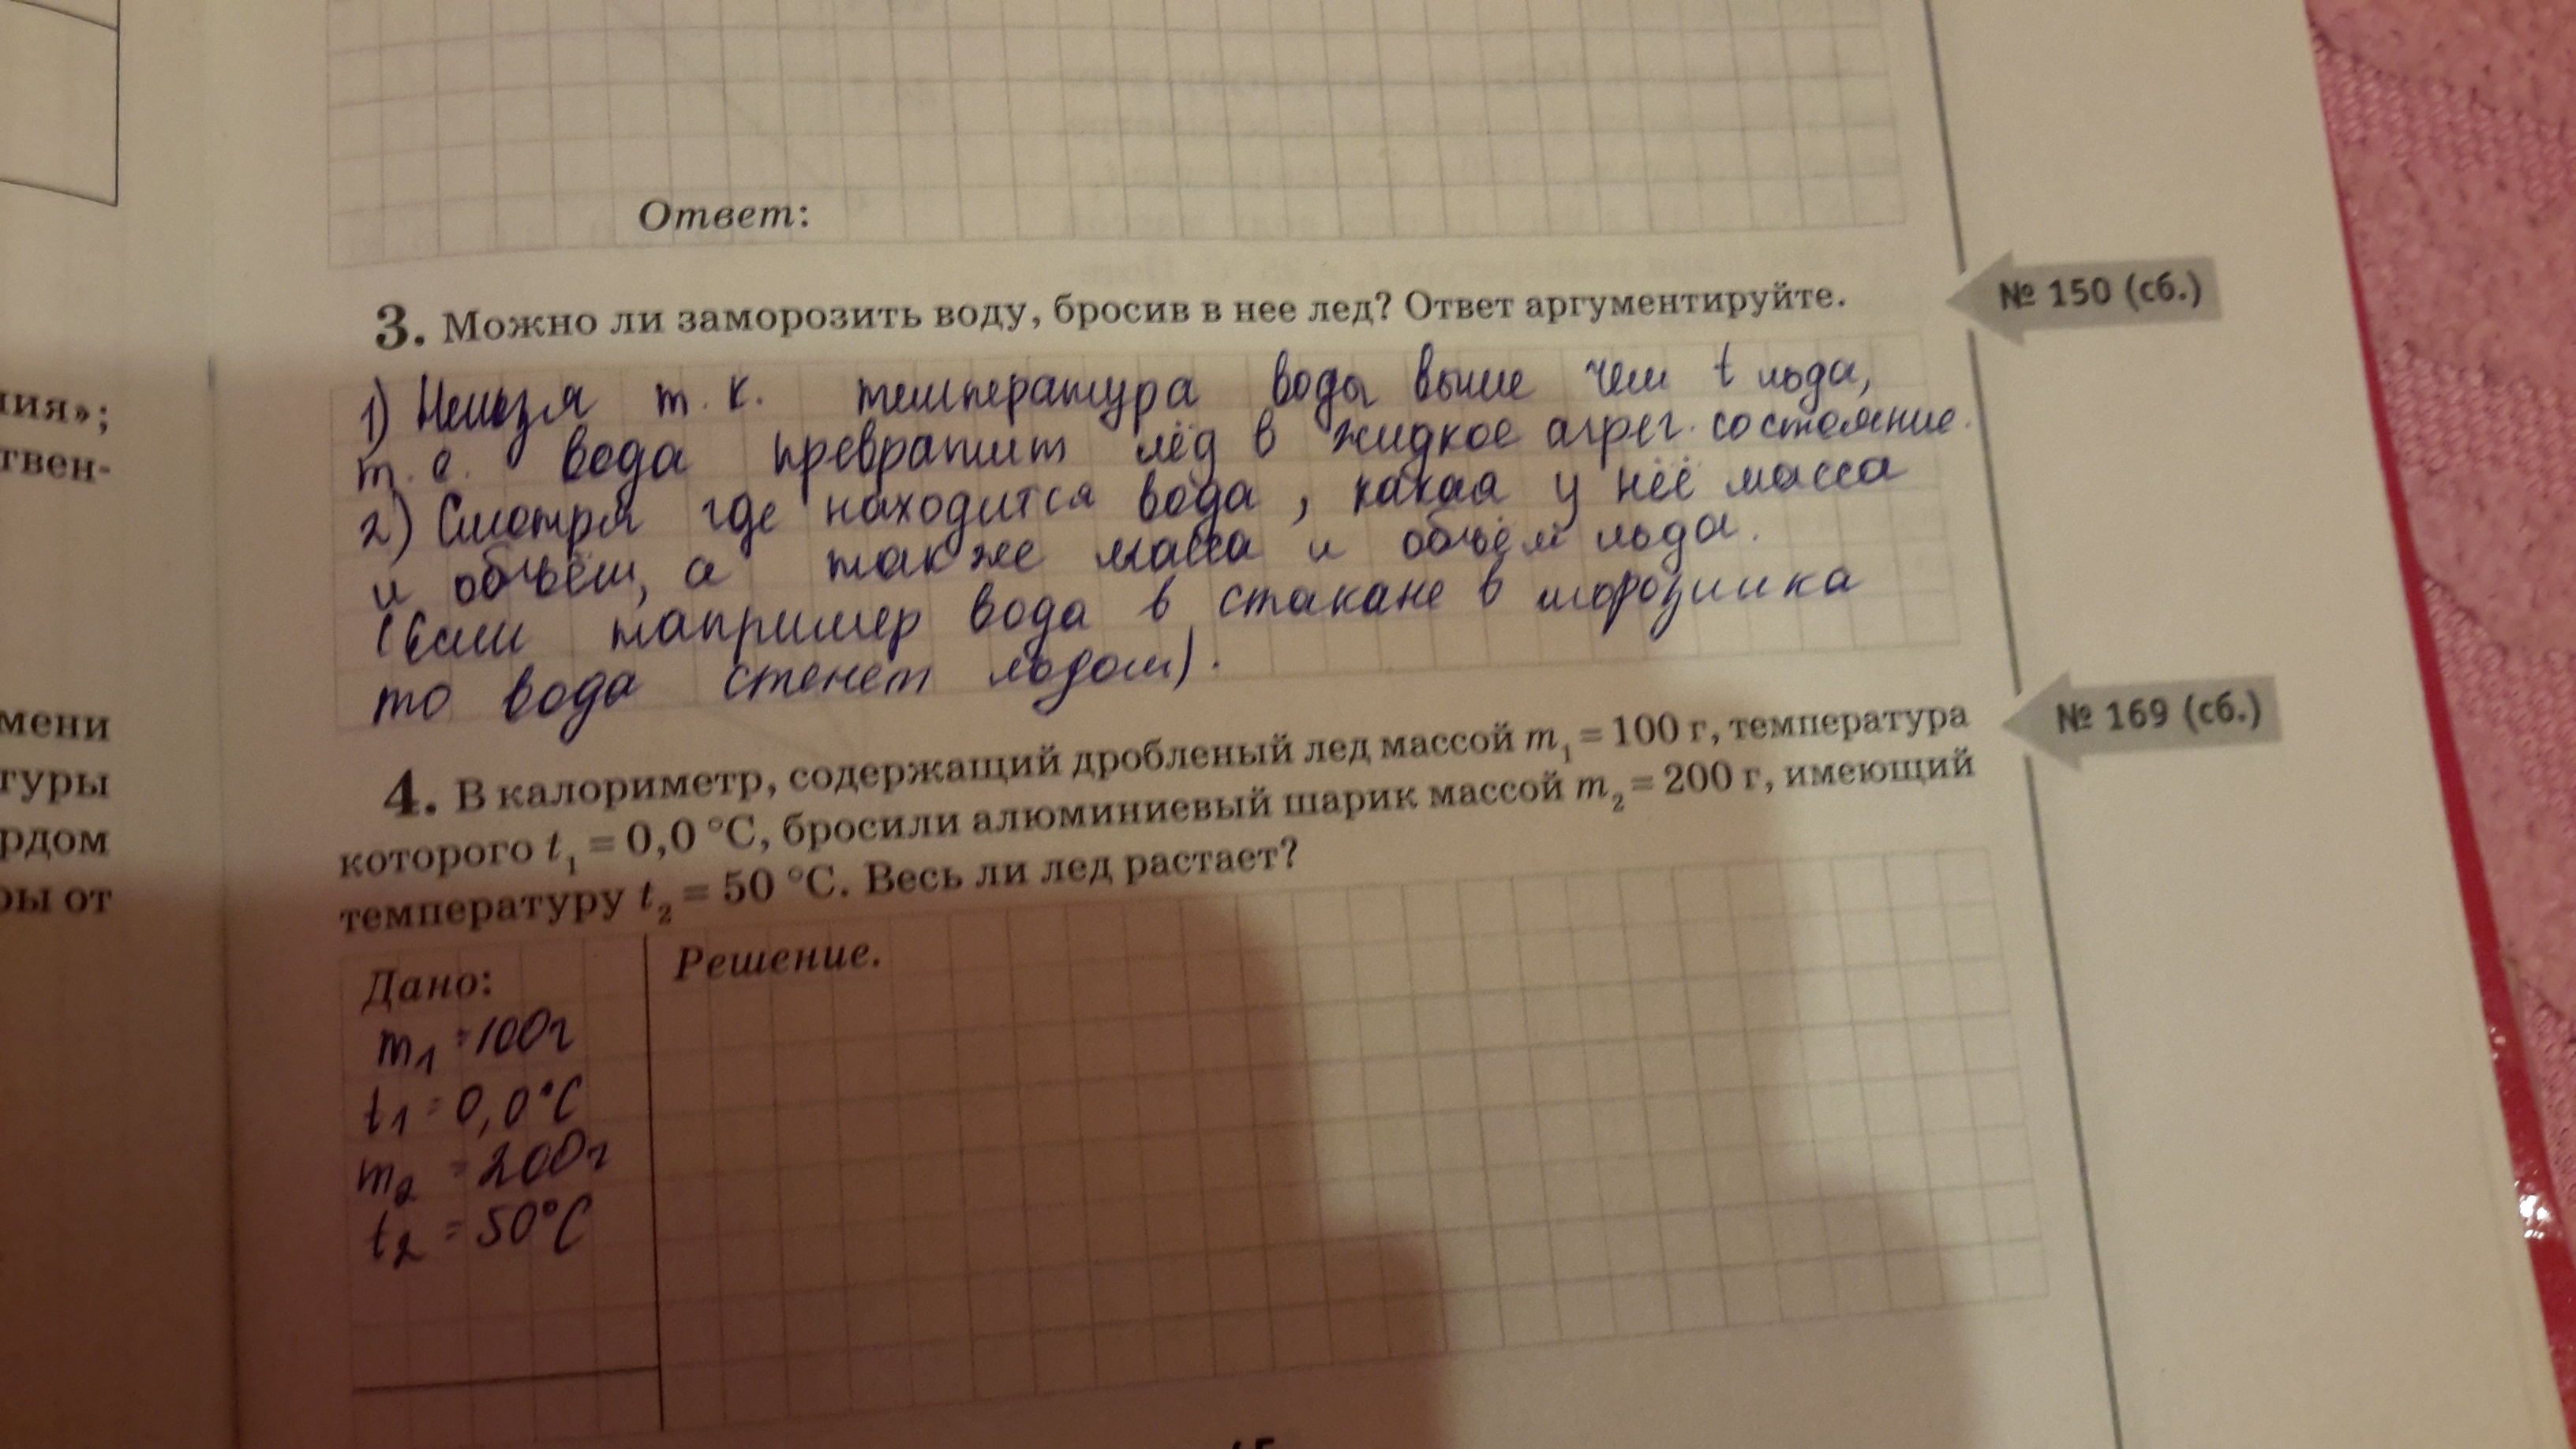 Ответ:
3. Можно ли заморозить воду, бросив в нее лед? Ответ аргументируйте.
№ 150 (сб.)
1) Нельзя т.к. температура воды выше чем t льда,
т.е. вода превратит лёд в жидкое агрег. состояние.
2) Смотря где находится вода, какая у неё масса
и объём, а также масса и объём льда.
(Если например вода в стакане в морозилка
то вода стенет льдом).
4. В калориметр, содержащий дробленый лед массой m₁ = 100 г, температура
которого t₁ = 0,0 °С, бросили алюминиевый шарик массой m₂ = 200 г, имеющий
температуру t₂ = 50 °С. Весь ли лед растает?
№ 169 (сб.)
Дано:
m₁ = 100г
t₁ = 0,0°C
m₂ = 200г
t₂ = 50°C
Решение.
ния»;
твен-
мени
туры
рдом
ры от